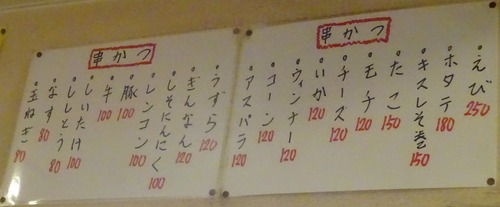 串かつ
えび 250
ホタテ 180
キスしそ巻 150
たこ 150
モチ 120
チーズ 120
いか 120
ウィンナー 120
コーン 120
アスパラ 120
串かつ
うずら 120
ぎんなん 120
しそにんにく 100
レンコン 100
豚 100
牛 100
しいたけ 100
ししとう 80
なす 80
玉ねぎ 80